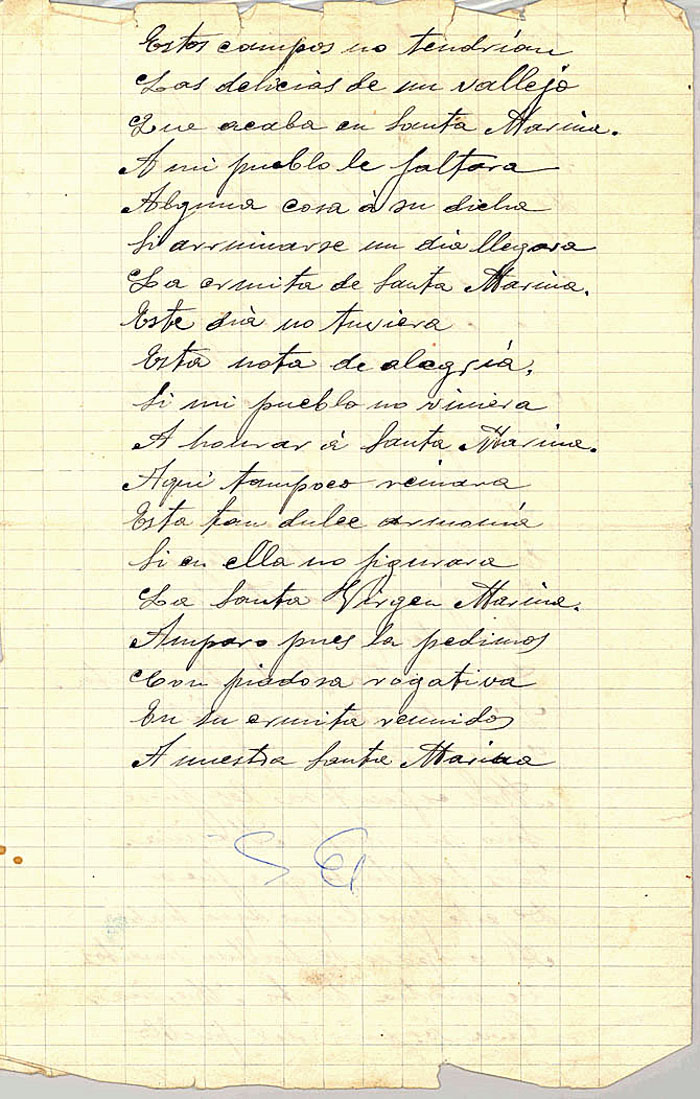 Estos campos no tendrían
Las delicias de un vallejo
Que acaba en Santa Marina.
A mi pueblo le faltara
Alguna cosa á su dicha
Si arruinarse un dia llegara
La ermita de Santa Marina.
Este dia no tuviera
Esta nota de alegría,
Si mi pueblo no viniera
A honrar á Santa Marina.
Aquí tampoco reinara
Esta tan dulce armonía
Si en ella no figurara
La Santa Virgen Marina.
Amparo pues la pedimos
Con piadosa rogativa
En su ermita reunidos
A nuestra Santa Marina